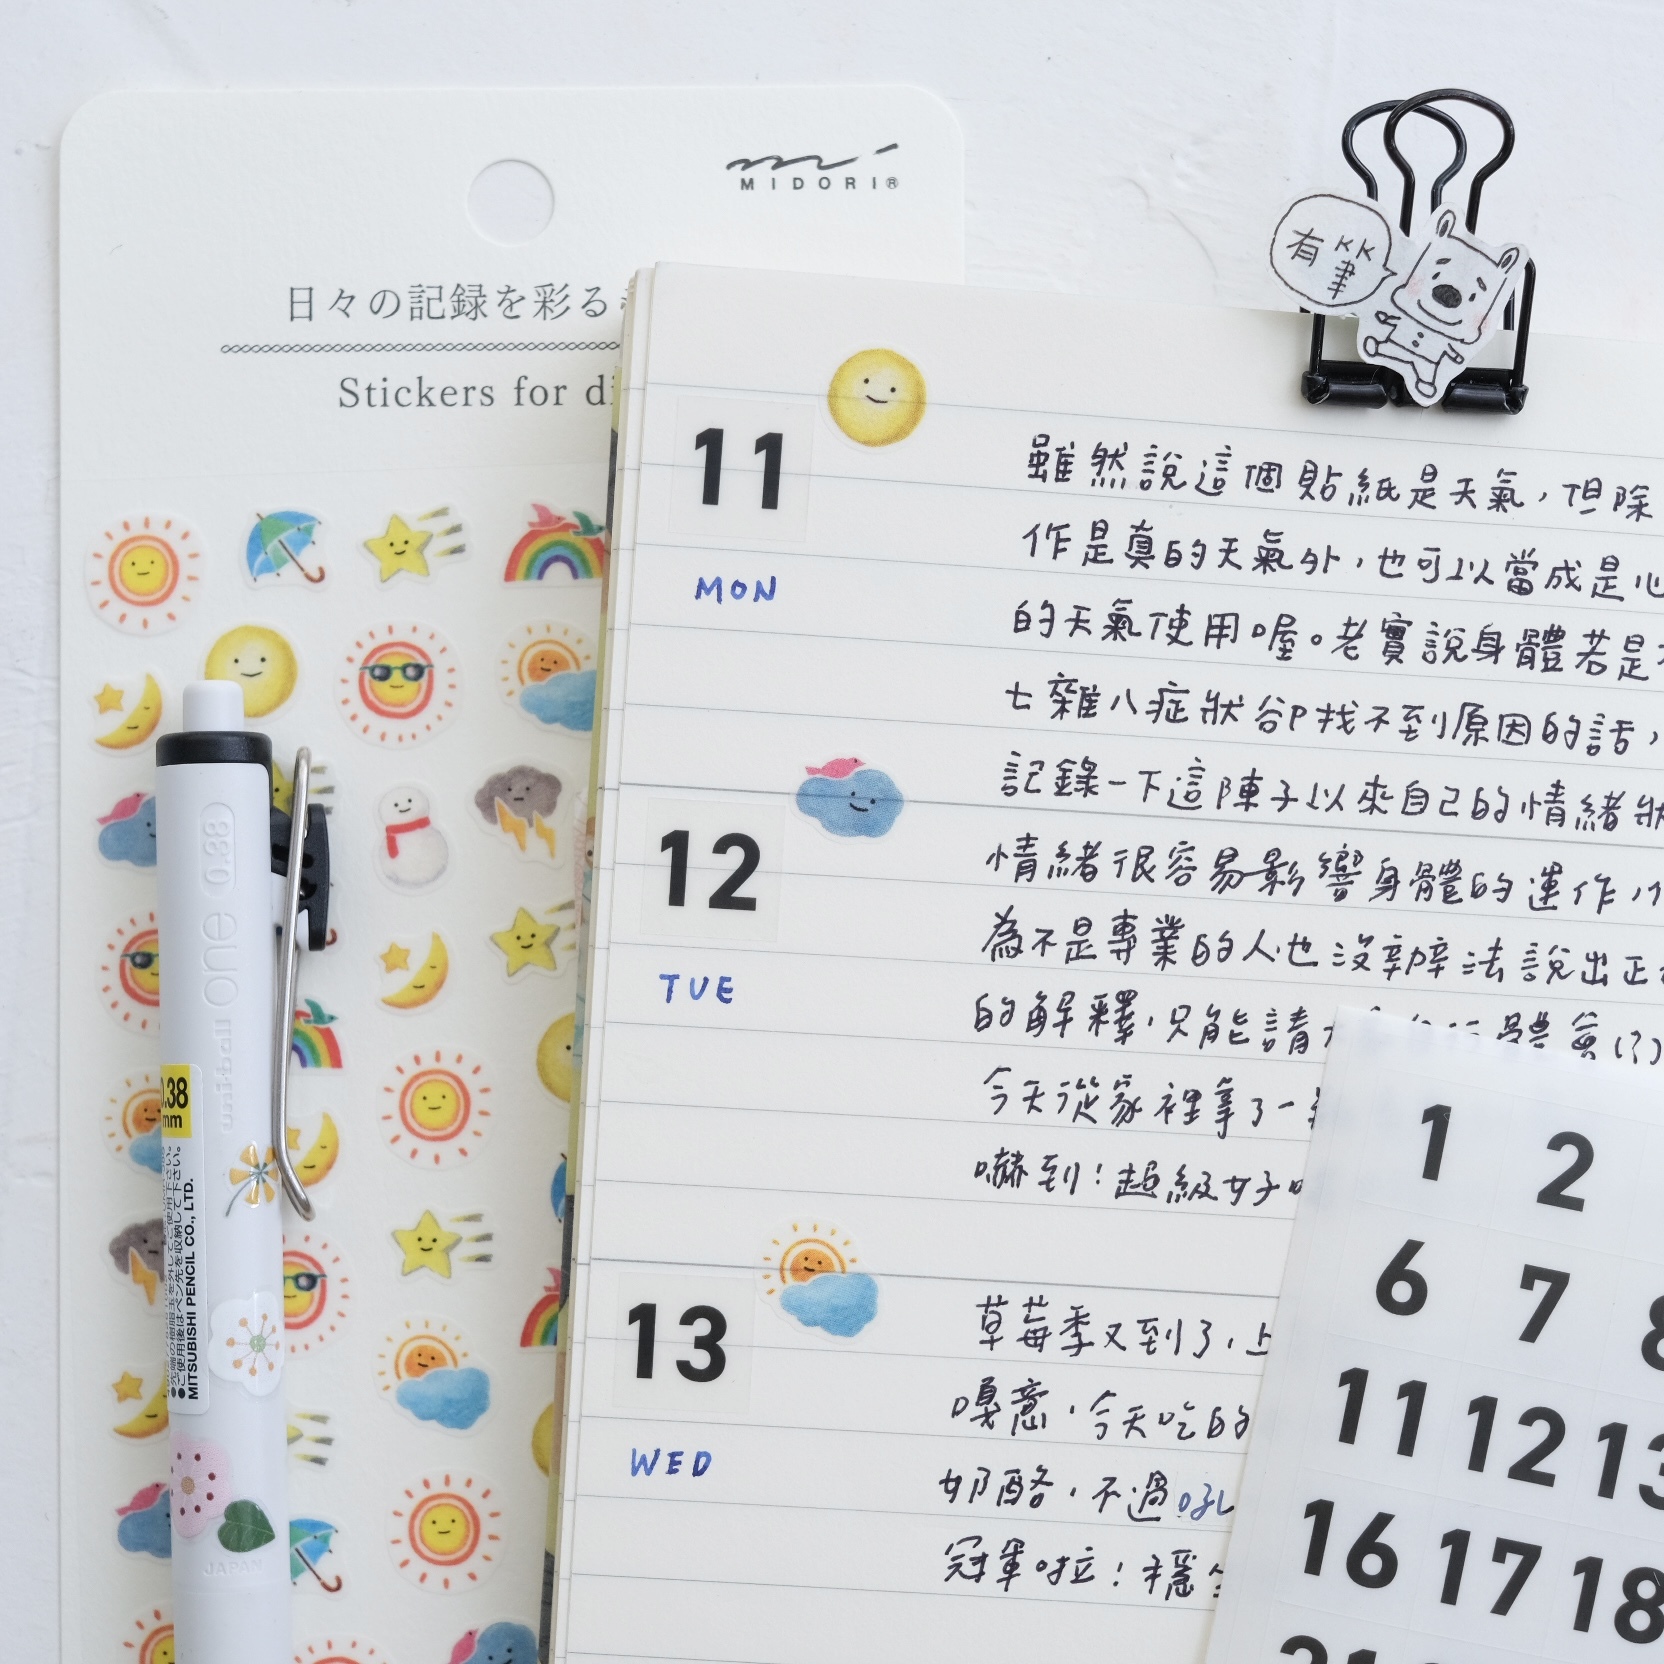 MIDORI®
日々の記録を彩る
Stickers for di
有
11
MON
雖然說這個貼紙是天氣，但除
作是真的天氣外，也可以當成是心
的天氣使用喔。老實說身體若是
七雜八症狀卻找不到原因的話，
記錄一下這陣子以來自己的情緒狀
12
TUE
情緒很容易影響身體的運作，
為不是專業的人也沒辦法說出正
的解釋，只能請
今天從家裡拿了一
嚇到！超級女子
13
WED
草莓季又到了，上
嘎意，今天吃的
奶酪，不過
冠軍啦！穩
1 2
6 7 8
11 12 13
16 17 18
21
uni-ball one 0.38
0.38
mm
●ご使用後はペン先を収納して下さい。
MITSUBISHI PENCIL CO., LTD.
JAPAN